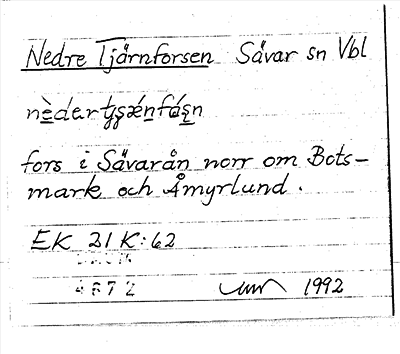 Nedre Tjärnforsen Sävar sn Vbl
fors i Sävarån norr om Bots-
mark och Åmyrlund.
EK 21 K:62
4872
1992